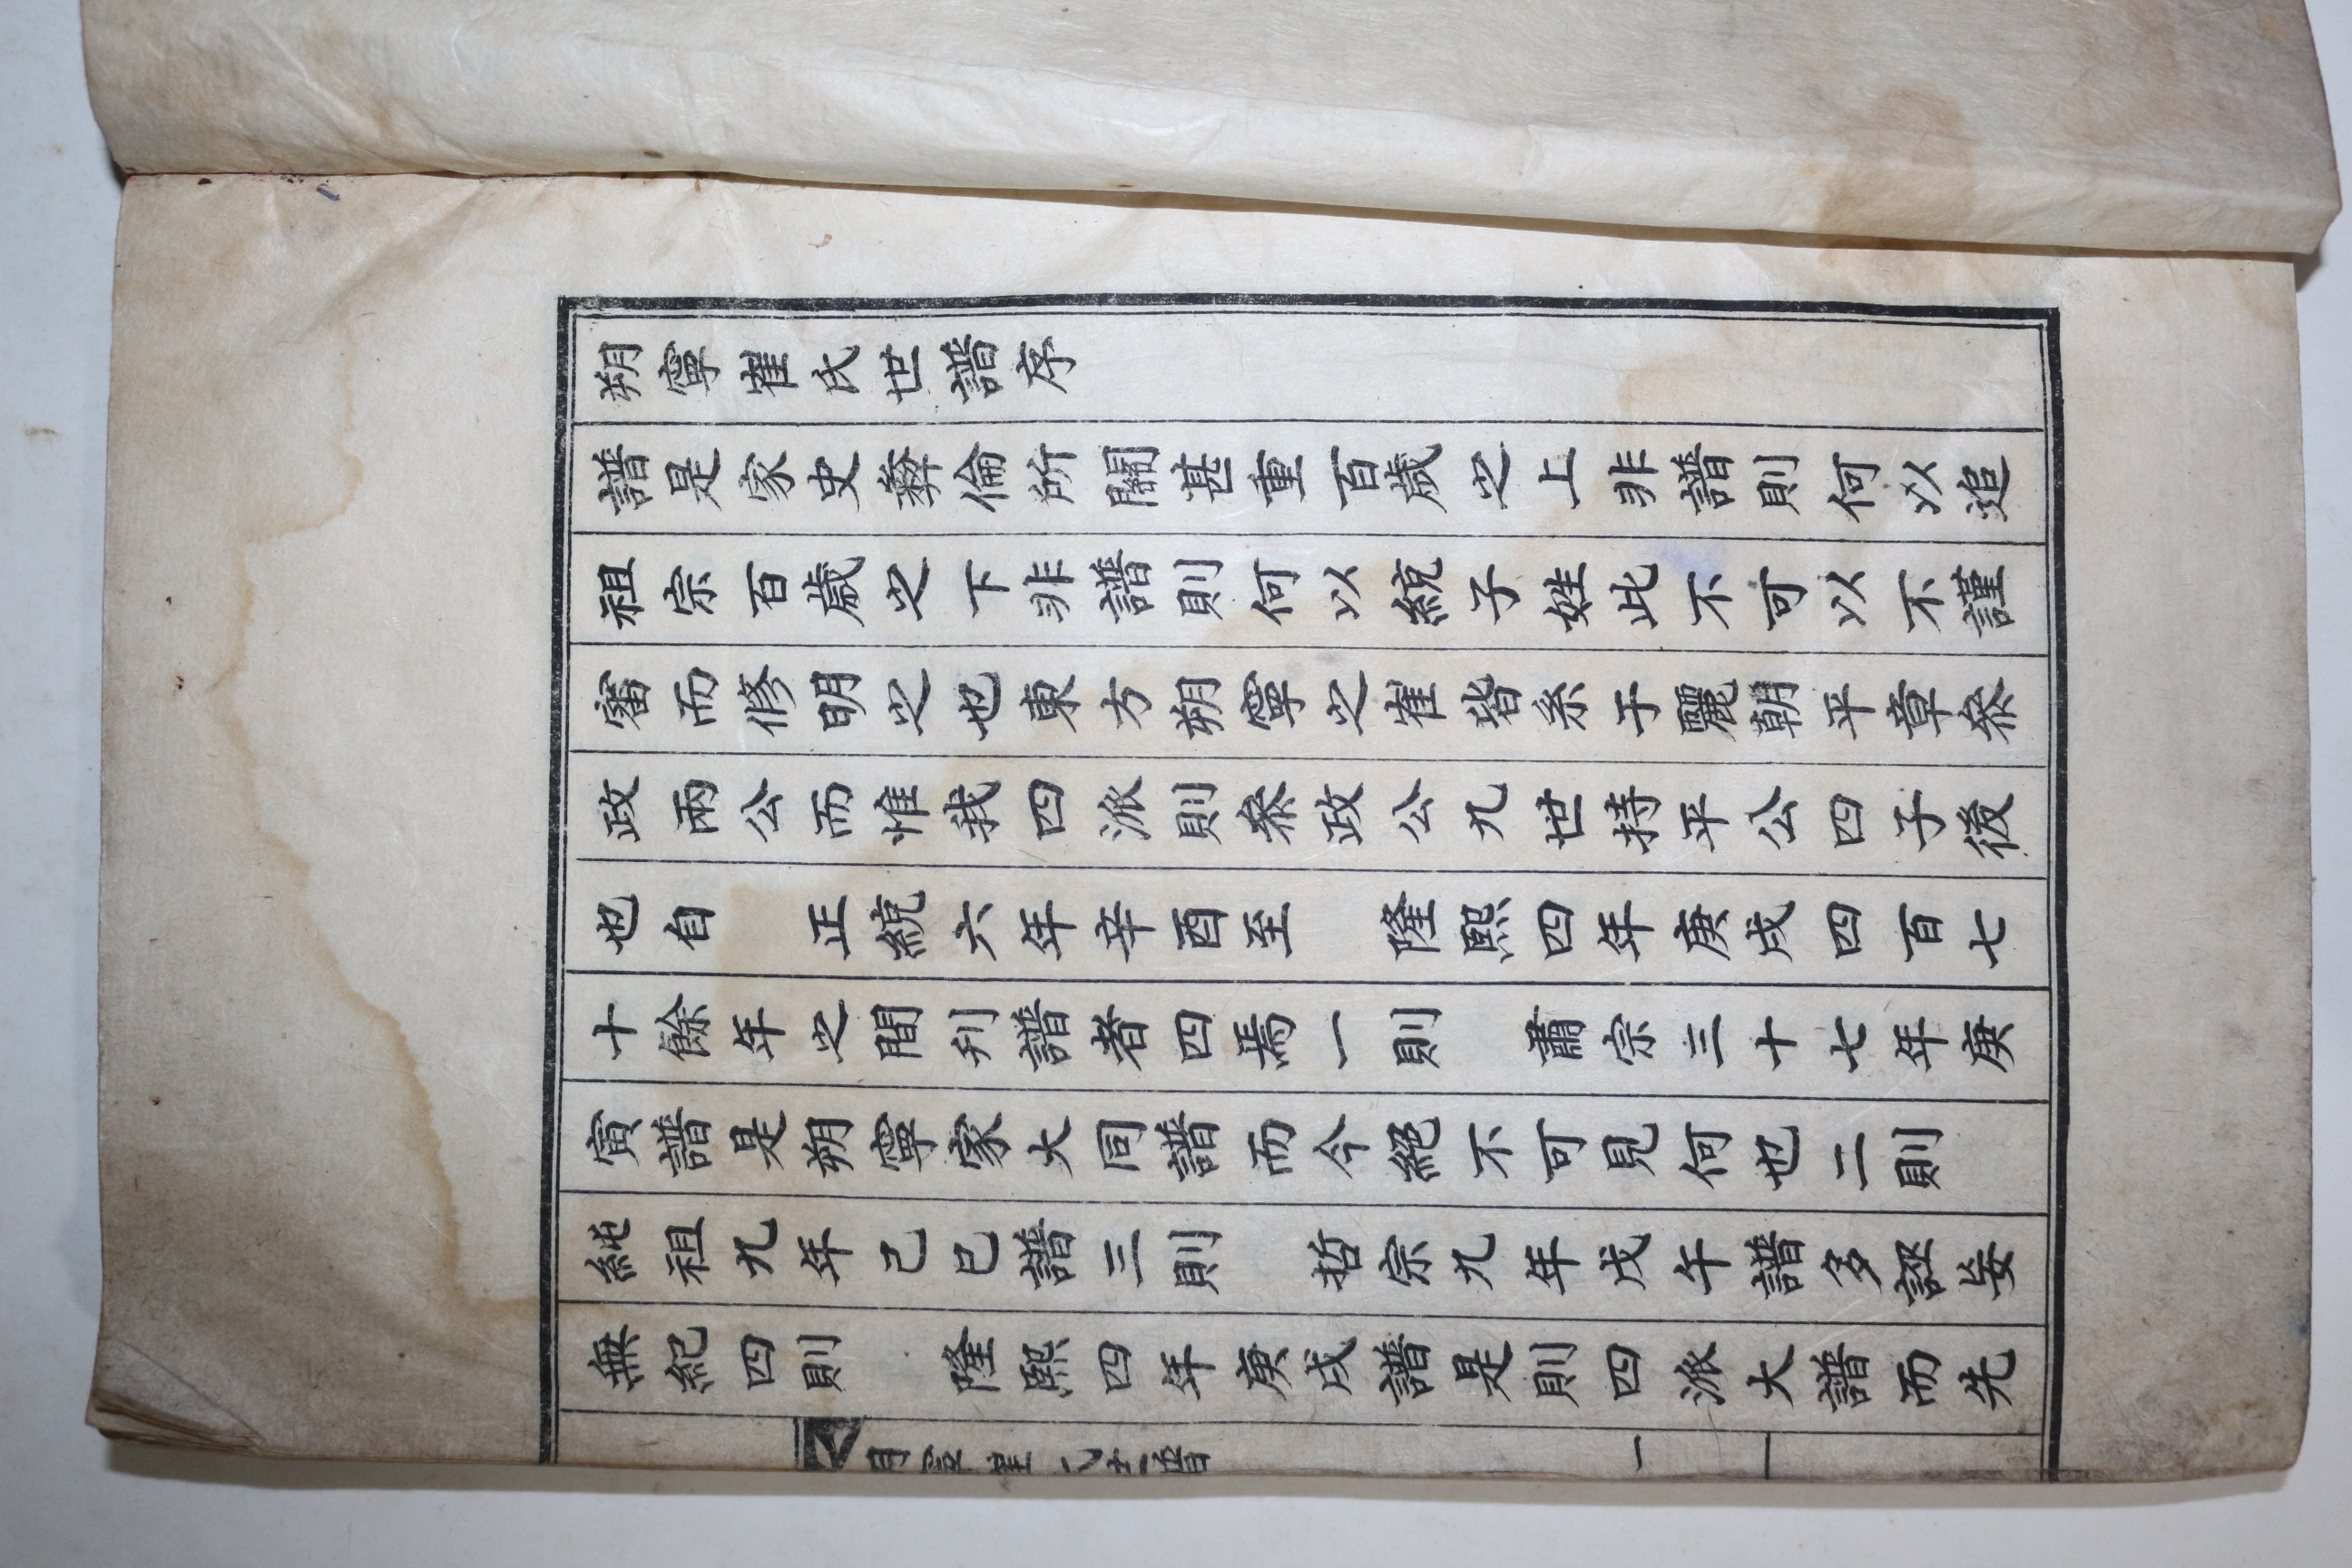 朔寧崔氏世譜序
譜是家史彝倫所關甚重百歲之上非譜則何以追
祖宗百歲之下非譜則何以統子姓此不可以不謹
審而修明之也東方朔寧之崔皆系于麗朝平章叅
政兩公而惟我四派則叅政公九世持平公四子後
也自　正統六年辛酉至　隆熙四年庚戌四百七
十餘年之間刋譜者四焉一則　肅宗三十七年庚
寅譜是朔寧家大同譜而今絕不可見何也二則
純祖九年己巳譜三則　哲宗九年戊午譜多誣妄
無紀四則　隆熙四年庚戌譜是則四派大譜而先
朔寧崔氏世譜
一